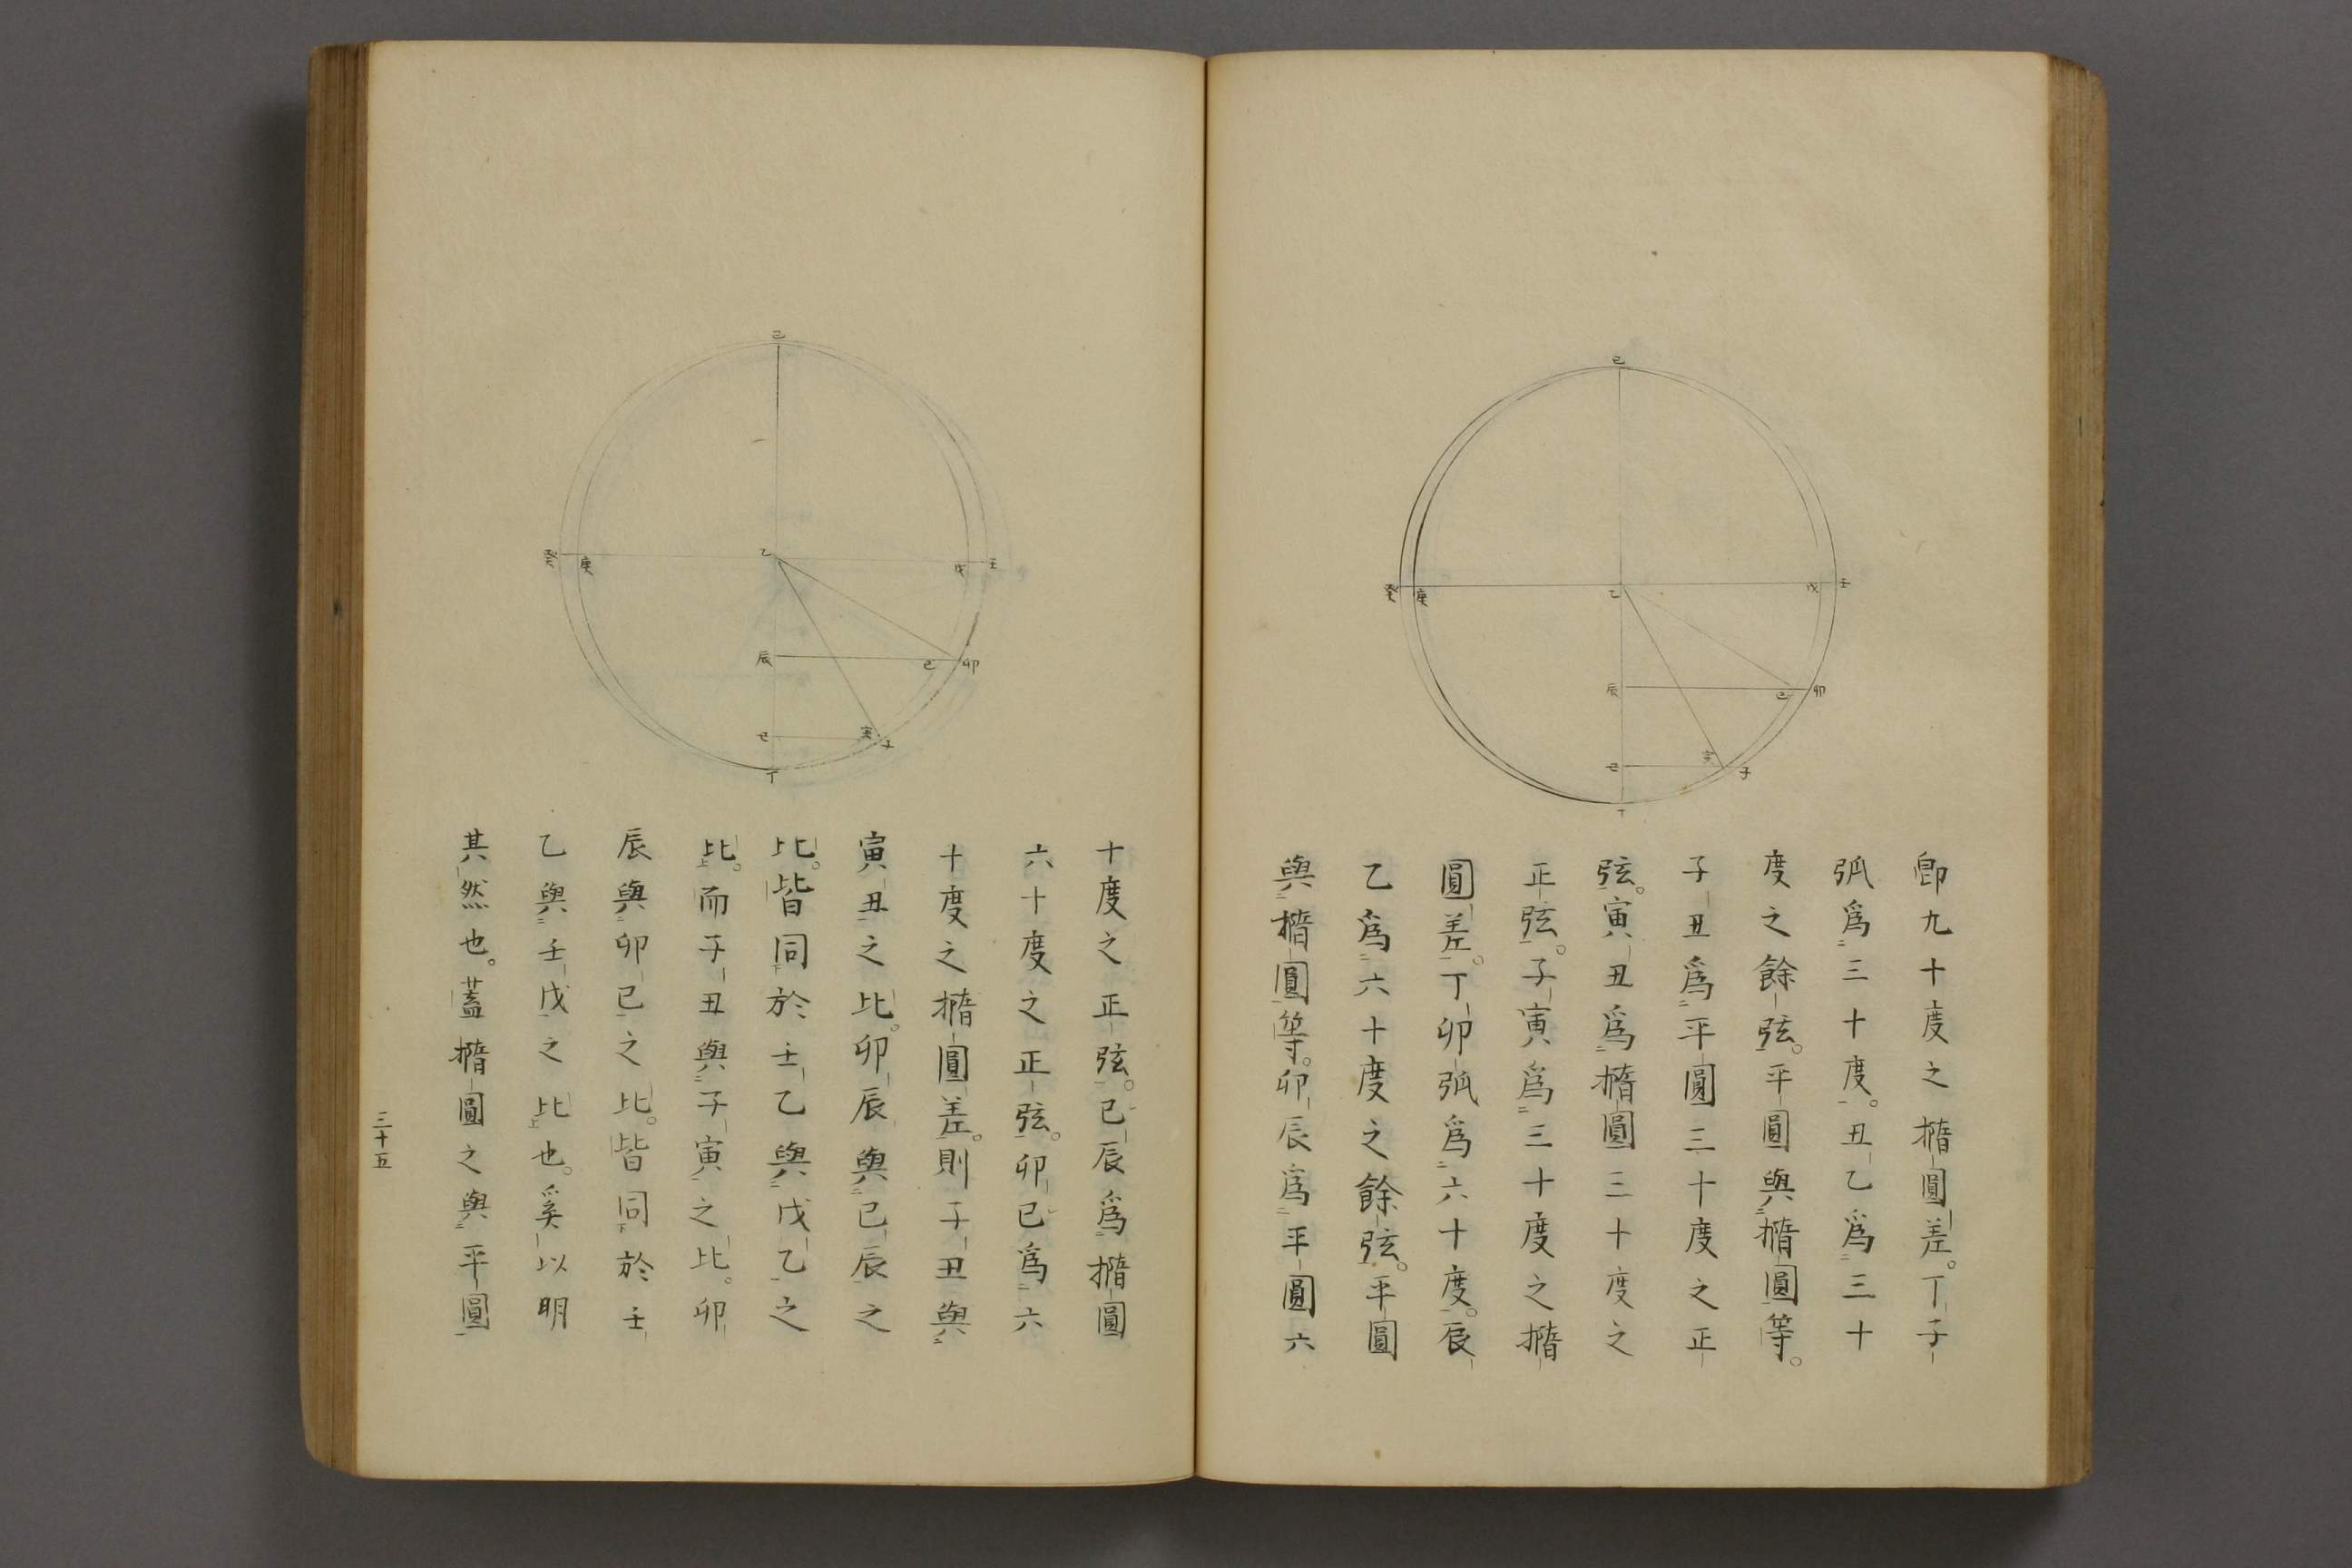 己
癸
庚
乙
戊
壬
辰
巳
卯
丑
寅
子
丁
卽九十度之橢圓差。丁子
弧爲三十度。丑乙爲三十
度之餘弦。平圓與橢圓等。
子丑爲平圓三十度之正
弦。寅丑爲橢圓三十度之
正弦。子寅爲三十度之橢
圓差。丁卯弧爲六十度。辰
乙爲六十度之餘弦。平圓
與橢圓等。卯辰爲平圓六
己
癸
庚
乙
戊
壬
辰
巳
卯
丑
寅
子
丁
十度之正弦。巳辰爲橢圓
六十度之正弦。卯巳爲六
十度之橢圓差。則子丑與
寅丑之比。卯辰與巳辰之
比。皆同於壬乙與戊乙之
比。而子丑與子寅之比。卯
辰與卯巳之比。皆同於壬
乙與壬戊之比也。奚以明
其然也。蓋橢圓之與平圓
三十五